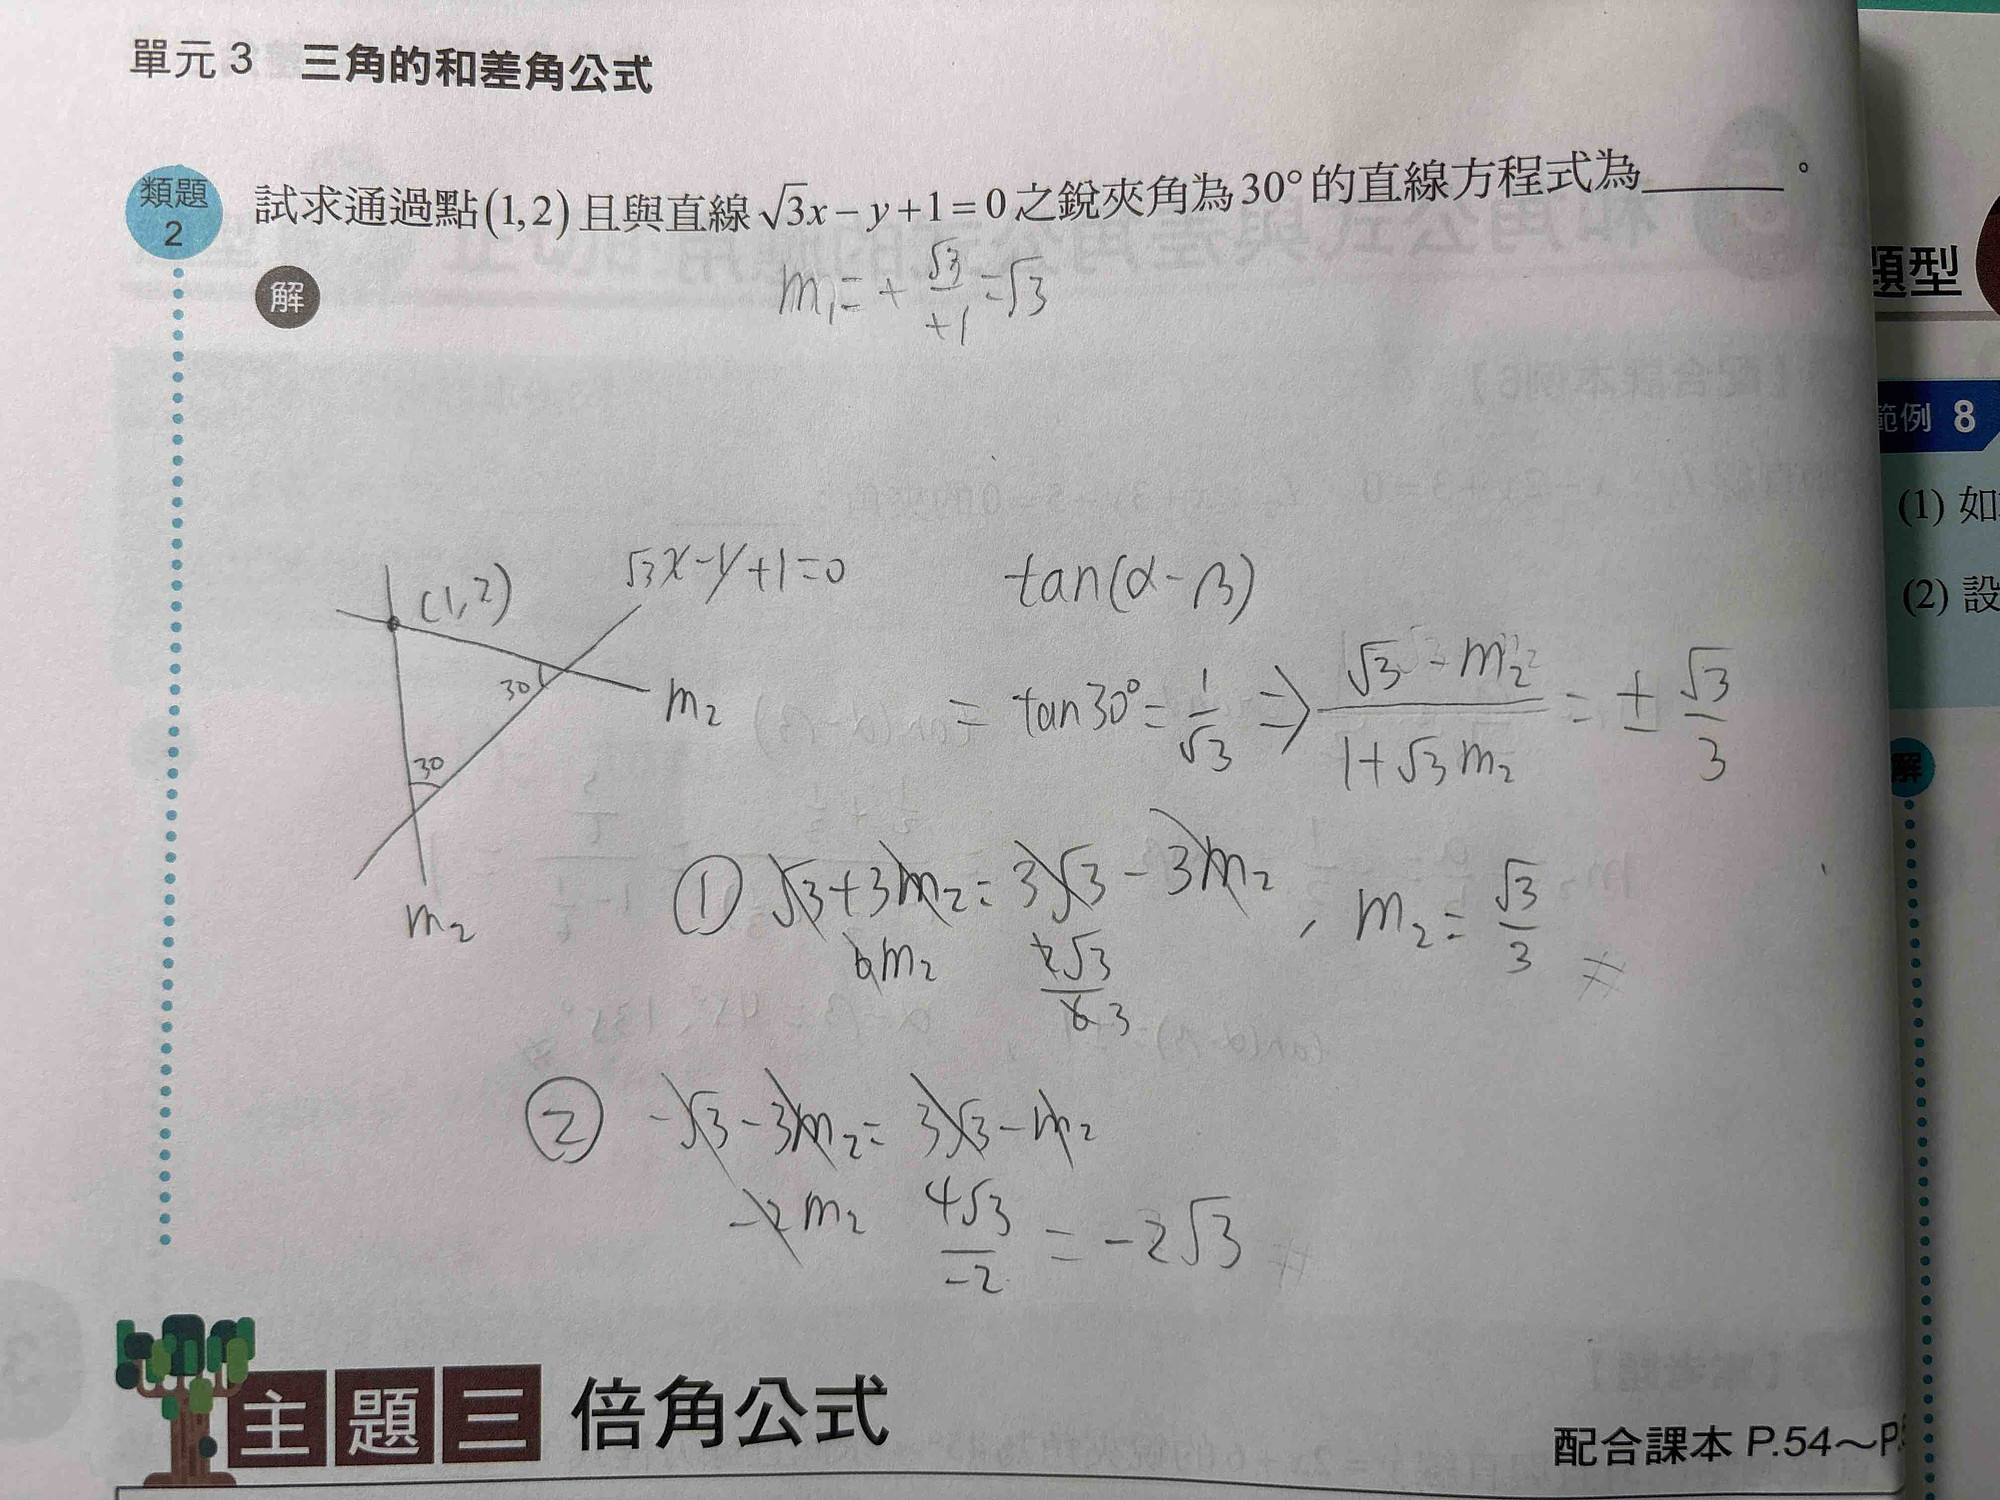 單元 3 三角的和差角公式
類題 2
試求通過點(1,2)且與直線√3x－y+1=0之銳夾角為30°的直線方程式為______。
解
m₁=+√3/+1=√3
題型
範例 8
(1) 如
(2) 設
解
(1,2)
√3x-y+1=0
30
m₂
30
m₂
tan(α-β)
= tan30°=1/√3 ⇒ (√3-m₂)/(1+√3m₂) = ±√3/3
① √3+3m₂=3√3-3m₂ , m₂=√3/3 #
6m₂ 2√3/6 3
② -√3-3m₂=3√3-m₂
-2m₂ 4√3/-2 = -2√3 #
主題三 倍角公式
配合課本 P.54～P.